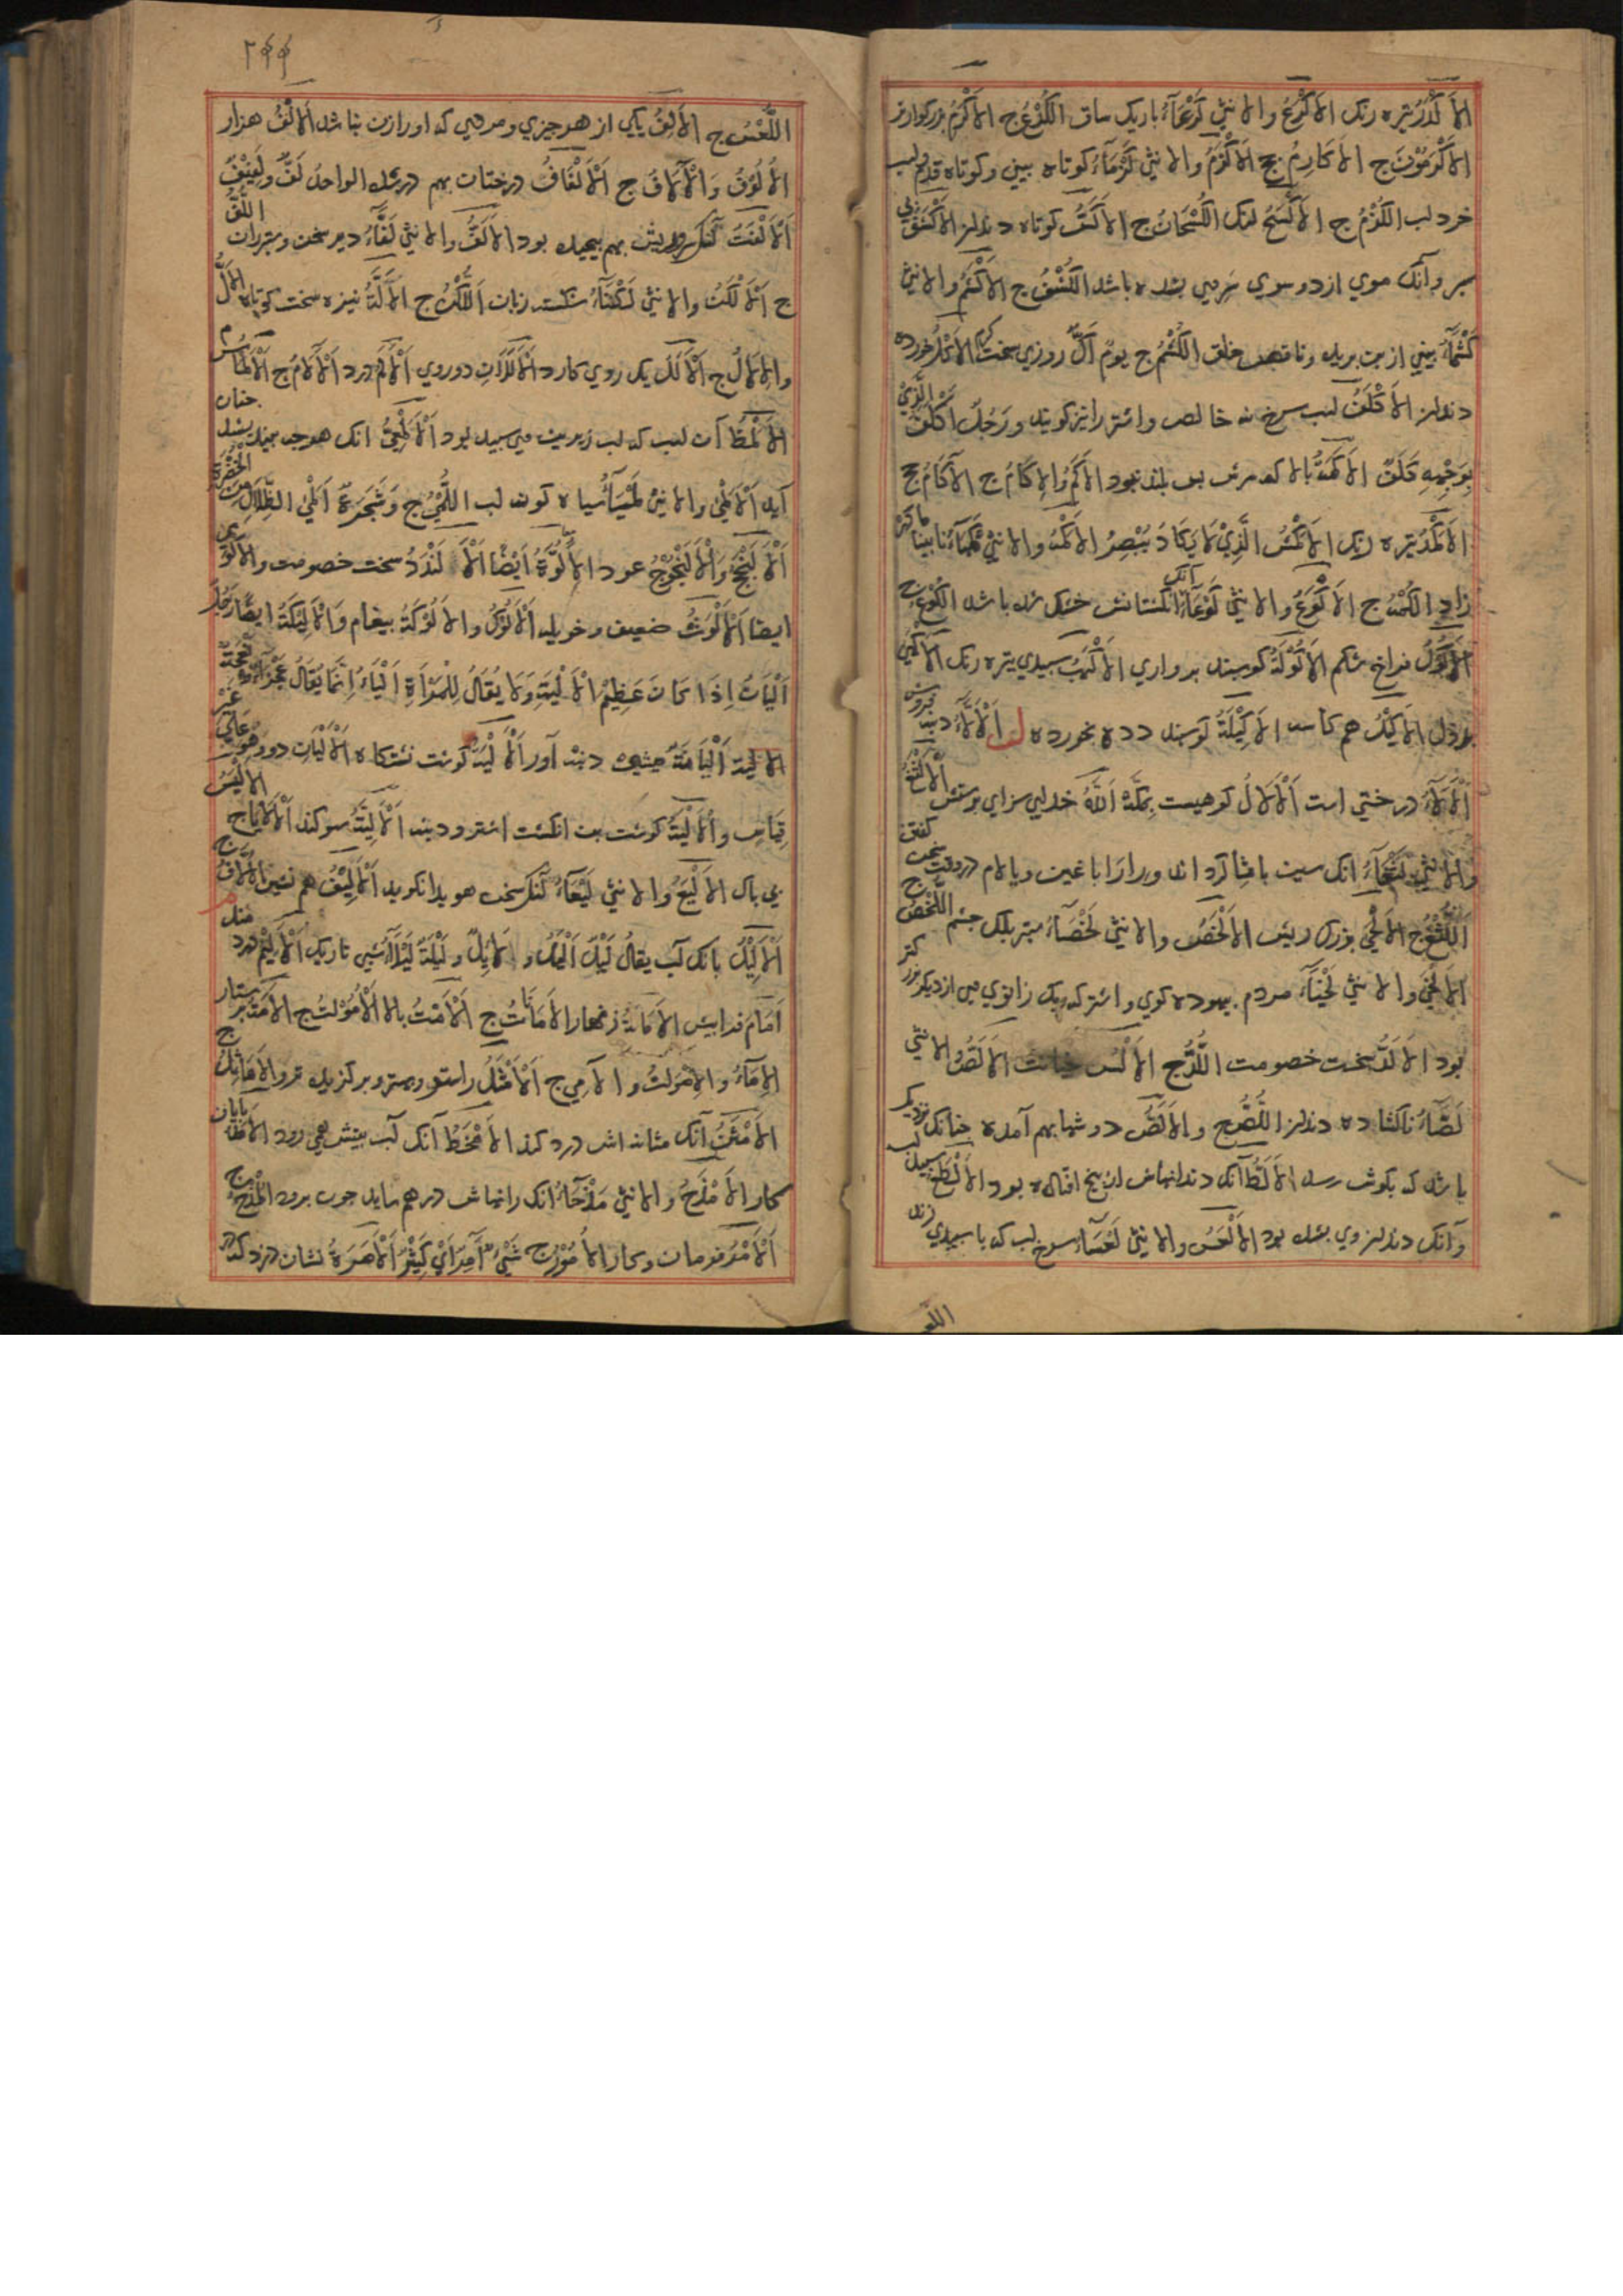 الأكدر تیره رنك الأكرع والانثی كرعاء باریك ساق الكرع ج الأكرم بزركوارتر
الأكرمون ج الأكارم ج الأكزم والانثی كزماء كوتاه بینی وكوتاه قدم ولب
خرد لب الكزم ج الأكسح لنك الكسحان ج الأكس كوتاه دندان الأكشف
سر وآنك موی از دو سوی سر می شده باشد الكشف ج الأكشم والانثی
كشماء بینی از بن بریده وناقص خلق الكشم ج یوم اك روزی سخت كرم الأكل خورده
دندان الأكلف لب سرخ نه خالص واشتر را نیز كویند ورجل اكلف الذی
بوجهه كلف الأكمة بالا كه سرش بس بلند نبود الأكم والإكام ج الآكام ج
الأكمد تیره رنك الأكمش الذی لا یكاد یبصر الأكمه والانثی كمهاء نابینا مادر
زاد الكمه ج الأكوع والانثی كوعاء آنك انكشتانش خشك شده باشد الكوع ج
الأكول فراخ شكم الأكولة كوسپند پرواری الأكهب سپیدی تیره رنك
بددل الأكیل هم كاسه الأكیلة كوسپند دده بخورده ل الألاء دنبه فروش
الألاء درختی است الألال كوهیست بمكة الله خدای سزای پرستش الألثغ
والانثی لثغاء انك سین با ثا كرداند ورا را با غین ویا لام در وقت سخن كفتن
اللثغ ج الألحی بزرك ریش الألخص والانثی لخصاء ستبر پلك چشم اللخص ج
الألخی والانثی لخیاء مردم بیهوده كوی واشتر كه یك زانوی من از دیكر بزركتر
بود الألد سخت خصومت اللد ج الألس خیانت الألص والانثی
لصاء ناكشاده دندان اللص ج والألص دوشها بهم آمده چنانك نزدیك
باشد كه بكوش رسد الألط آنك دندانهاش از بیخ افتاده بود الألطع سپید لب
وآنك دندان وی بشده بود الألعس والانثی لعساء سرخ لب كه با سپیدی زند
اللع
٢٩٩
اللعس ج الألف یكی از هر چیزی ومردی كه او را زن نباشد الألف هزار
الألوف والآلاف ج الألفاف درختان بهم در شده الواحد لف ولفیف
الألفت كنك وریش بهم پیچیده بود الألف والانثی لفاء دیر سخن وستبر ران اللف
ج الألكن والانثی لكناء شكسته زبان اللكن ج الألة نیزه سخت كوتاه الأل
والإلال ج الألل یك روی كارد الأللان دو روی الألم درد الآلام ج الألماس
الألمظ آن لب كه لب زیرین می سپید بود الألمعی انك هر چه بیند چنان
آید الألمی والانثی لمیاء سیاه كون لب اللمی ج وشجرة المی الظلال من الخضرة
الألنجج والألنجوج عود الألوة ایضا الألندد سخت خصومت والألوی
ایضا الألوث ضعیف وخویله الألوك والألوكة پیغام والألیكة ایضا رجل
الیان اذا كان عظیم الألیة ولا یقال للمرأة الیاء انما یقال عجزاء نعجة
الألیة الیانة میش دنبه آور الألیة كوشت نشستكاه الألیات دور وهو علی غیر
قیاس والألیة كوشت بن انكشت اشتر ودنبه الألیة سوكند الألایا ج الألیس
بی باك الألیغ والانثی لیغاء كنك سخن هویدا نكوید الألیف هم نشین
الألیل بانك آب یقال لیل الیل ولائل ولیلة لیلاء شبی تاریك الألیم دردمند م
امام فدا پیش الأمانة زنهار الأمانات ج الأمت بالا الأموت ج الأمة پرستار
الإماء والإموات والآمی ج الأمثل راستر وبهتر وبركزیده تر والأماثل ج
الأمثن آنك مثانه اش درد كند الأمخط آنك آب بینیش همی رود الأمد پایان
كار الأمذح والانثی مذحاء انك رانهاش در هم ساید چون برود المذح ج
الأمر فرمان وكار الأمور ج شیء امر ای كثیر الأمرة نشان